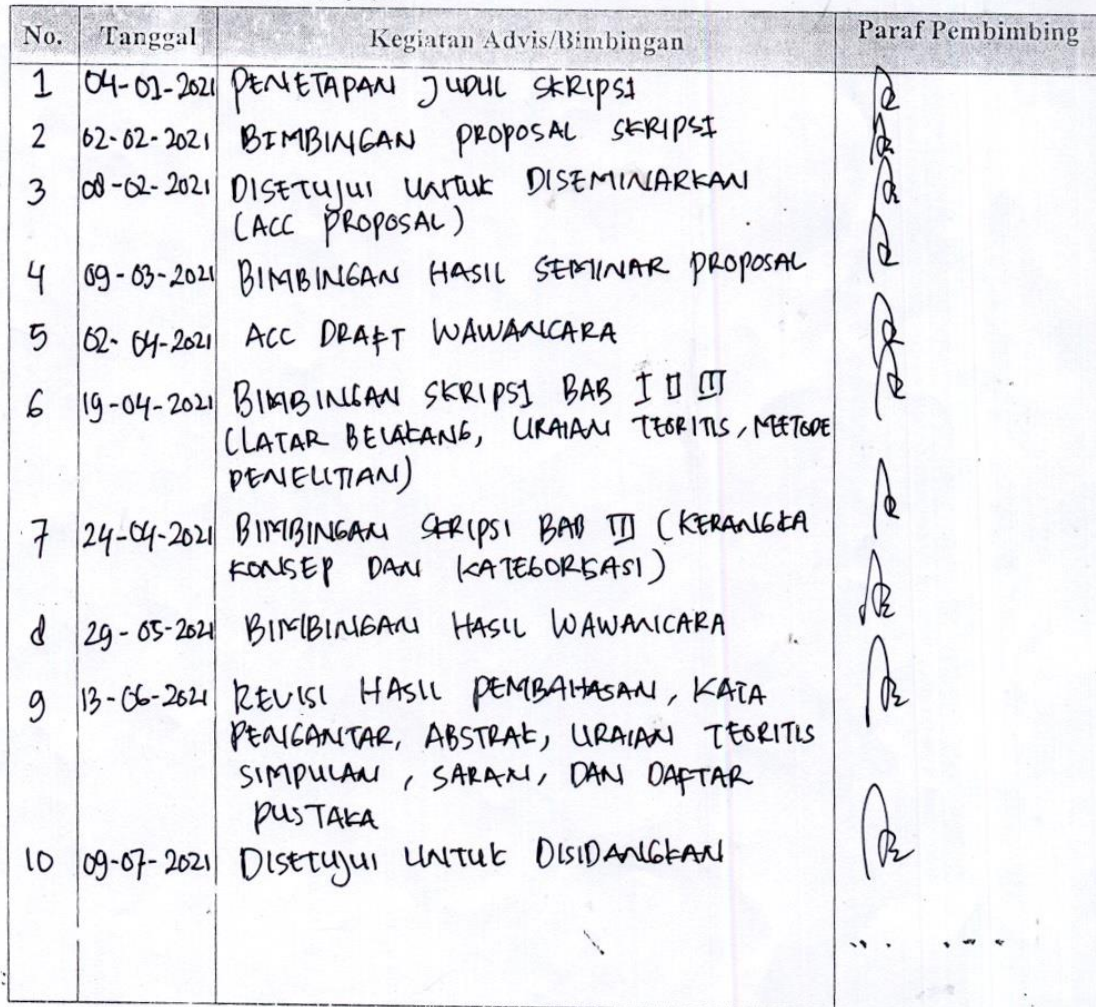 No. Tanggal Kegiatan Advis/Bimbingan Paraf Pembimbing
1 04-01-2021 PENETAPAN JUDUL SKRIPSI
2 02-02-2021 BIMBINGAN PROPOSAL SKRIPSI
3 08-02-2021 DISETUJUI UNTUK DISEMINARKAN
(ACC PROPOSAL)
4 09-03-2021 BIMBINGAN HASIL SEMINAR PROPOSAL
5 02-04-2021 ACC DRAFT WAWANCARA
6 19-04-2021 BIMBINGAN SKRIPSI BAB I II III
(LATAR BELAKANG, URAIAN TEORITIS, METODE
PENELITIAN)
7 24-04-2021 BIMBINGAN SKRIPSI BAB III (KERANGKA
KONSEP DAN KATEGORISASI)
8 29-05-2021 BIMBINGAN HASIL WAWANCARA
9 13-06-2021 REVISI HASIL PEMBAHASAN, KATA
PENGANTAR, ABSTRAK, URAIAN TEORITIS
SIMPULAN, SARAN, DAN DAFTAR
PUSTAKA
10 09-07-2021 DISETUJUI UNTUK DISIDANGKAN